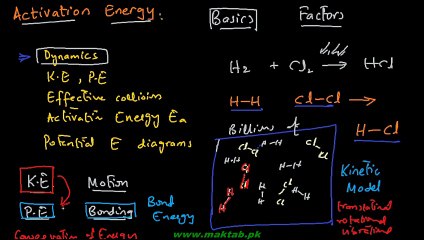 Activation Energy:
Basics
Factors
Dynamics
K.E, P.E
Effective collisions
Activation Energy Ea
Potential E diagrams
H2 + Cl2 → HCl
H-H Cl-Cl →
H-Cl
Billions of
Cl Cl H-H Cl Cl
H-H Cl Cl H-H
H H H H Cl Cl H-H
Kinetic
Model
translational
rotational
vibrational
K.E Motion
P.E Bonding
Bond
Energy
Conservation of Energy
www.maktab.pk